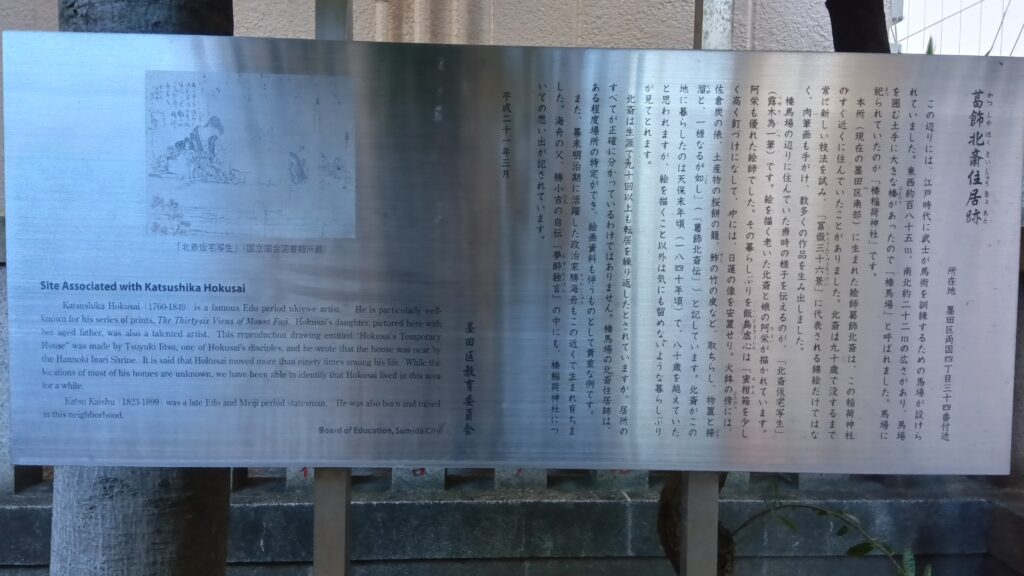 葛飾北斎住居跡
かつしかほくさいじゅうきょあと
所在地 墨田区両国四丁目三十四番付近
この辺りには、江戸時代に武士が馬術を訓練するための馬場が設けら
れていました。東西約百八十五m、南北約二十二mの広さがあり、馬場
を囲む土手に大きな榛があったので「榛馬場」と呼ばれました。馬場に
祀られていたのが「榛稲荷神社」です。
本所（現在の墨田区南部）に生まれた絵師葛飾北斎は、この稲荷神社
のすぐ近くに住んでいたことがありました。北斎は九十歳で没するまで
常に新しい技法を試み、「冨嶽三十六景」に代表される錦絵だけではな
く、肉筆画も手がけ、数多くの作品を生み出しました。
榛馬場の辺りに住んでいた当時の様子を伝えるのが、「北斎仮宅写生」
（露木為一筆）です。絵を描く老いた北斎と娘の阿栄が描かれています。
阿栄も優れた絵師でした。その暮らしぶりを飯島虚心は「蜜柑箱を少し
く高く釘づけになして、中には、日蓮の像を安置せり。火鉢の傍には、
佐倉炭の俵、土産物の桜餅の籠、鮓の竹の皮など、取ちらし、物置と掃
溜と、一様なるが如し」（「葛飾北斎伝」）と記しています。北斎がこの
地に暮らしたのは天保末年頃（一八四十年頃）で、八十歳を越えていた
と思われますが、絵を描くこと以外は気にも留めないような暮らしぶり
が見てとれます。
北斎は生涯で九十回以上も転居を繰り返したとされていますが、居所の
すべてが正確に分かっているわけではありません。榛馬場の北斎住居跡は、
ある程度場所の特定ができ、絵画資料も伴うものとして貴重な例です。
また、幕末明治期に活躍した政治家勝海舟もこの近くで生まれ育ちま
した。海舟の父、勝小吉の自伝「夢酔独言」の中にも、榛稲荷神社につ
いての思い出が記されています。
平成二十一年三月
墨田区教育委員会
「北斎仮宅写生」（国立国会図書館所蔵）
Site Associated with Katsushika Hokusai
Katsushika Hokusai (1760-1849) is a famous Edo period ukiyo-e artist. He is particularly well-
known for his series of prints, The Thirty-six Views of Mount Fuji. Hokusai's daughter, pictured here with
her aged father, was also a talented artist. This reproduction drawing entitled "Hokusai's Temporary
House" was made by Tsuyuki Iitsu, one of Hokusai's disciples, and he wrote that the house was near by
the Hannoki Inari Shrine. It is said that Hokusai moved more than ninety times among his life. While the
locations of most of his homes are unknown, we have been able to identify that Hokusai lived in this area
for a while.
Katsu Kaishu (1823-1899) was a late Edo and Meiji period statesman. He was also born and raised
in this neighborhood.
Board of Education, Sumida City